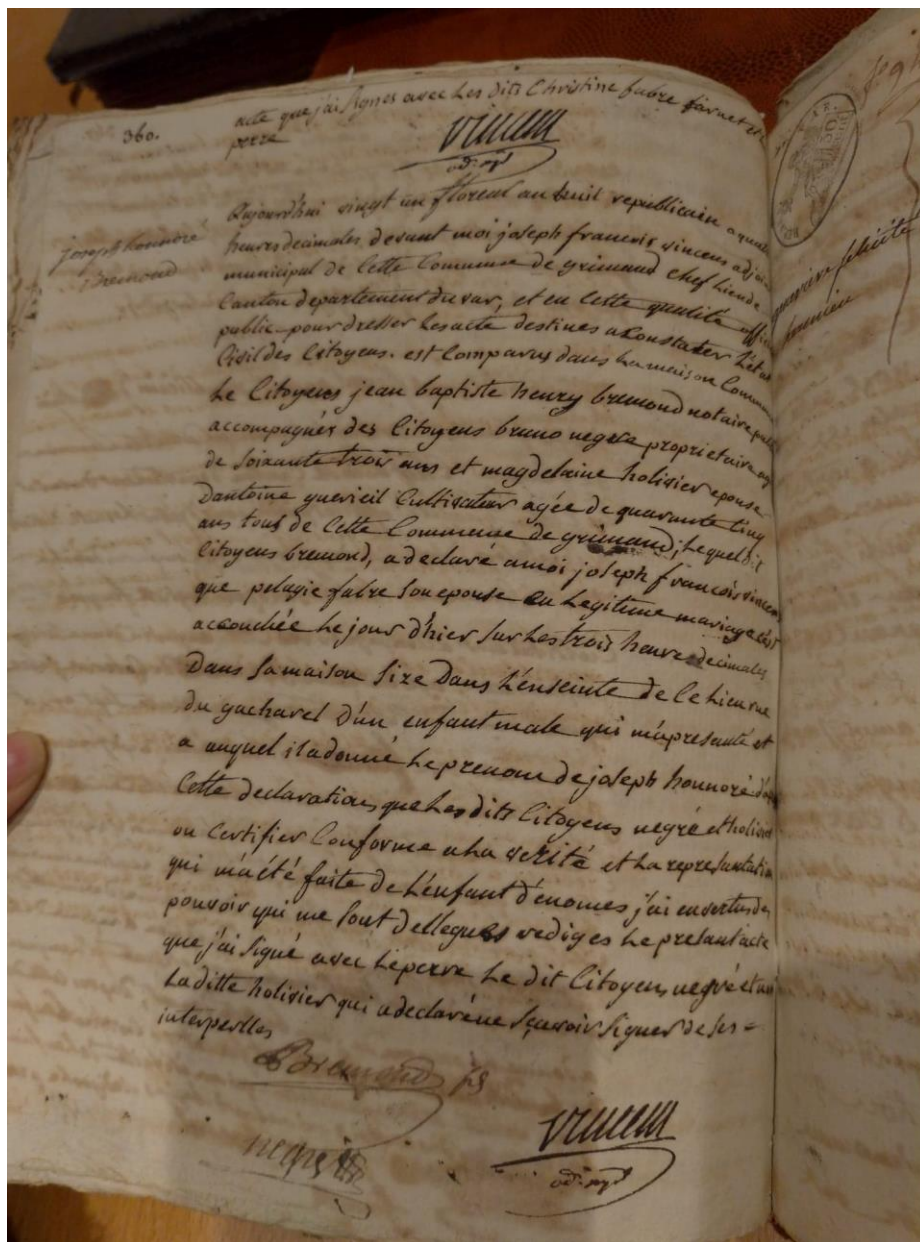 360.
acte que j'ai signes avec les dits Christine fabre
perre
Vincens
adj. mpl
joseph honnoré
Bremond
Aujourd'hui vingt un floreal an huit republicain a quatre
heures decimales devant moi joseph francois vincens adjoint
municipal de Cette Commune de grimaud chef liende
Canton departement du var, et en Cette qualité officier
public pour dresser les acte destines a Constater L'état
Civil des Citoyens. est Comparus dans La maison Commune
Le Citoyens jean baptiste henry bremond notaire public
accompagnés des Citoyens bruno negre proprietaire agé
de soixante trois ans et magdelaine holivier epouse
Dantoine guericil Cultivateur agée de quarante Cinq
ans tous de Cette Commune de grimaud; Lequel dit
Citoyens bremond, a declaré a moi joseph francois vincens
que pelagie fabre son epouse en Legitime mariage est
accouchée Le jour d'hier sur Les trois heure decimales
Dans sa maison size Dans L'enseinte de Ce Lieu rue
du gacharel d'un enfant male qui m'a presanté et
a auquel il a donné Le prenom de joseph honnoré d'après
Cette declaration, que Les dits Citoyens negré et holivier
on Certifier Conforme a La verité et La representation
qui m'a été faite de L'enfant d'enomes j'ai en vertus des
pouvoir qui me sont dellegues rediges Le presant acte
que j'ai signé avec Le perre Le dit Citoyens negré et non
La ditte holivier qui a declaré ne sçavoir signer de ses =
interpelles
Bremond
Vincens
negre
adj. mpl
felicité